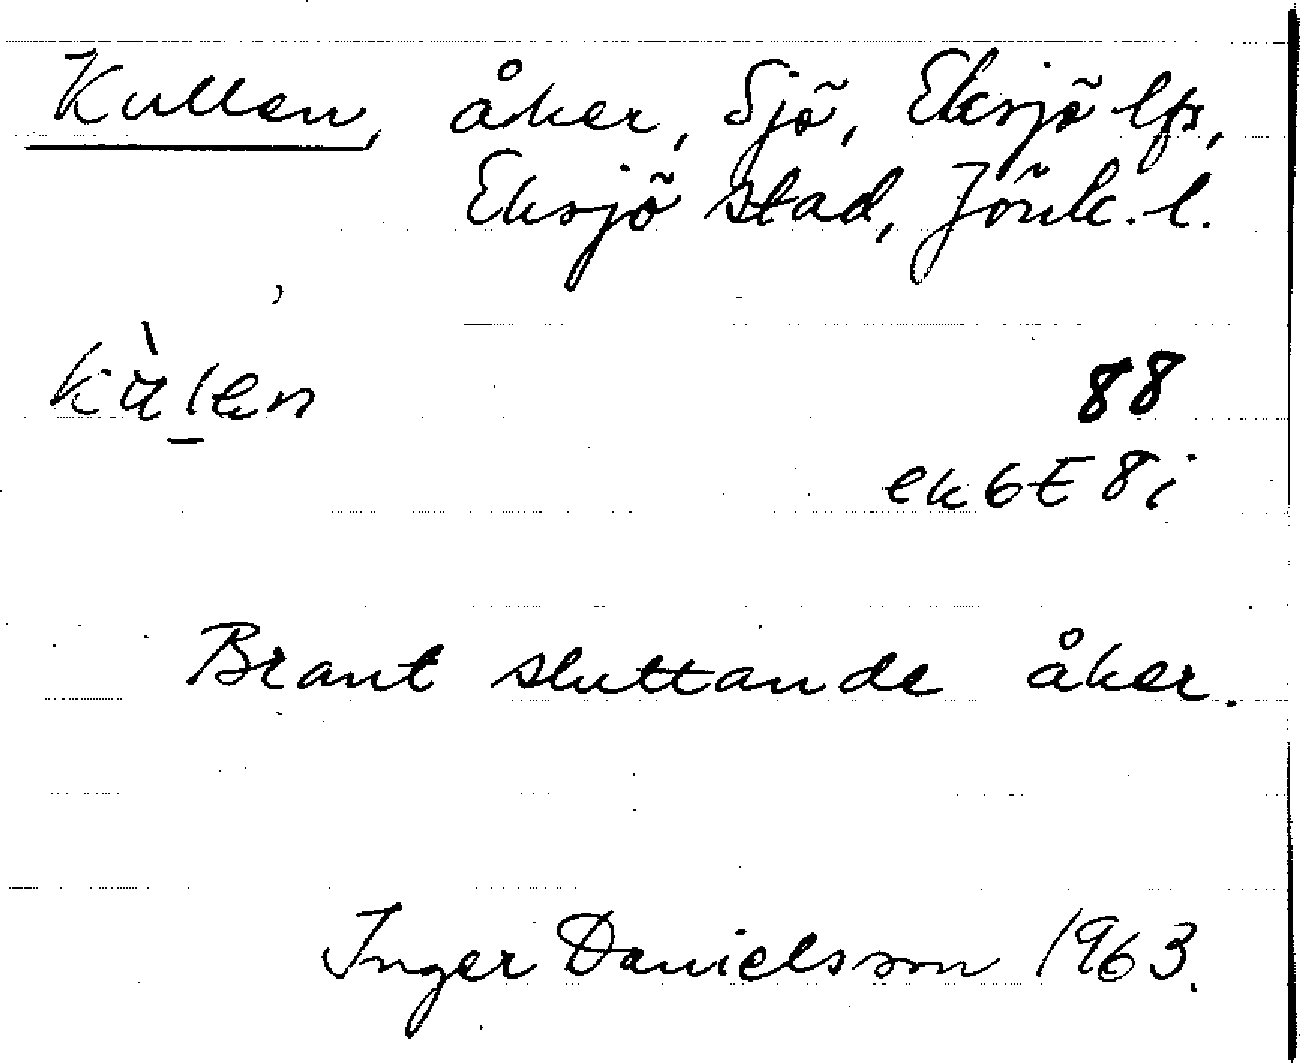 Kullen, åker, Sjö, Eksjö lfs,
Eksjö stad, Jönk. l.
kù̀l̲en
88
ek 6E 8i
Brant sluttande åker.
Inger Danielsson 1963.